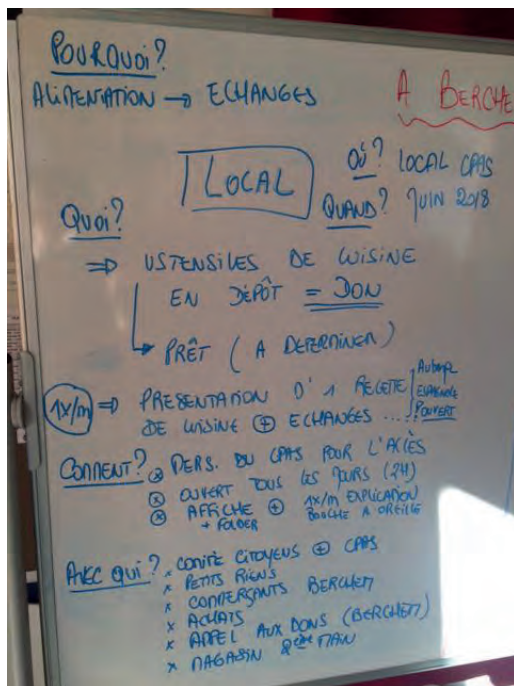 POURQUOI?
ALIMENTATION → ECHANGES
A BERCHE
LOCAL
OÙ? LOCAL CPAS
QUAND? JUIN 2018
QUOI?
⇒ USTENSILES DE CUISINE
EN DÉPÔT = DON
PRÊT ( A DETERMINER )
1x/m ⇒ PRESENTATION D' 1 RECETTE
DE CUISINE ⊕ ECHANGES ....
ESPAGNOLE
COMMENT? ⊗ PERS. DU CPAS POUR L'ACCÈS
⊗ OUVERT TOUS LES JOURS (2H)
⊗ AFFICHE ⊕ 1x/m EXPLICATION
+ FOLDER BOUCHE A OREILLE
AVEC QUI? x COMITÉ CITOYENS ⊕ CPAS
x PETITS RIENS
x COMMERÇANTS BERCHEM
x ACHATS
x APPEL AUX DONS (BERCHEM)
x MAGASIN 2ème MAIN